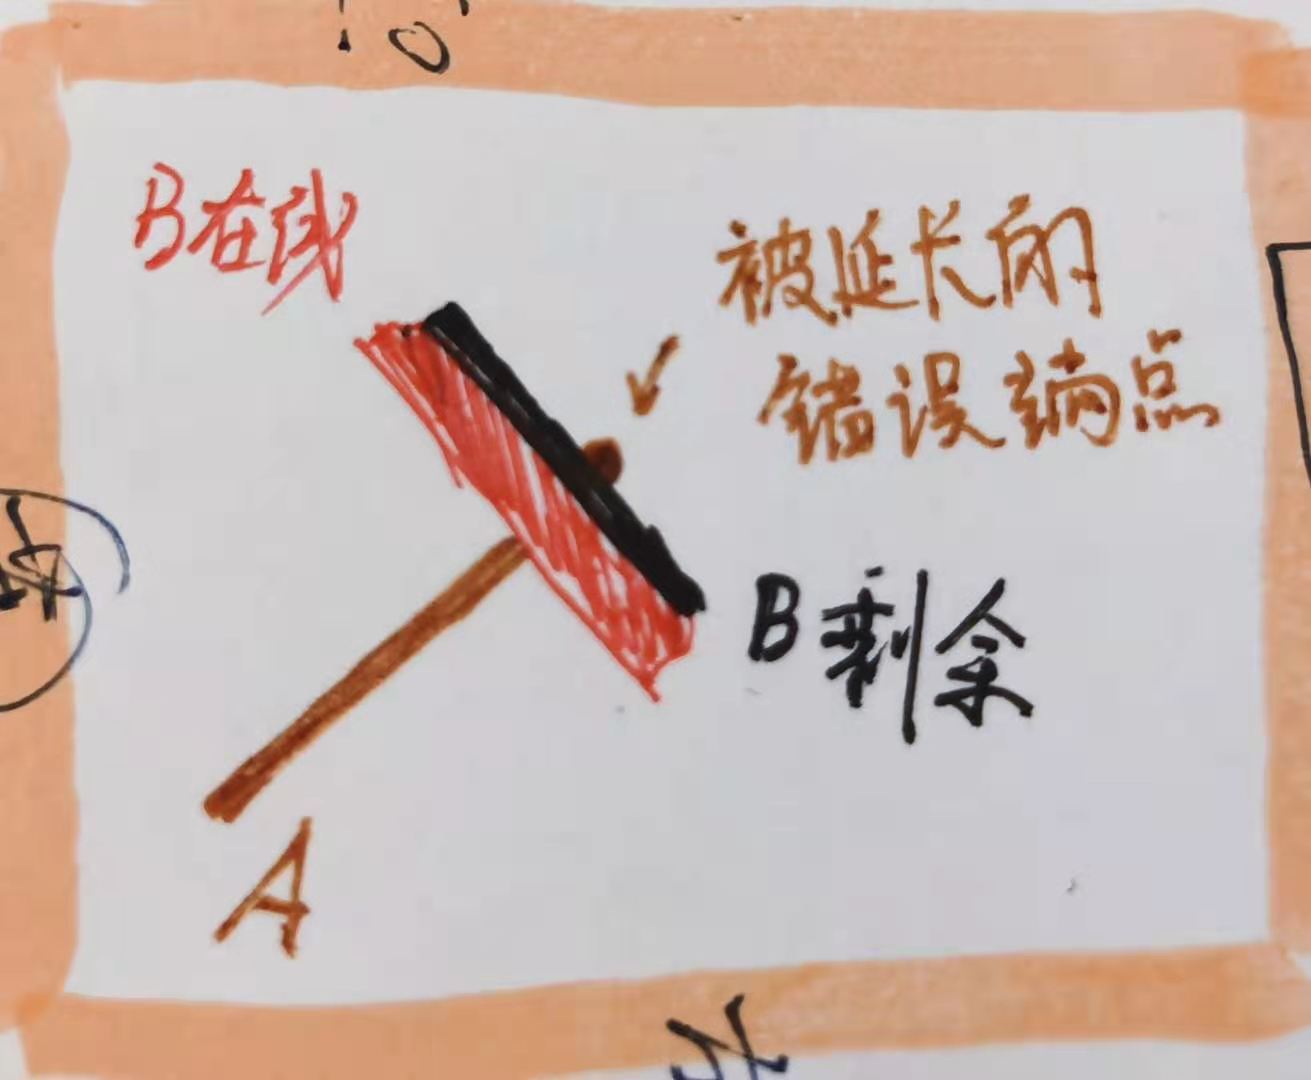 B在线
被延长的
错误端点
B剩余
A